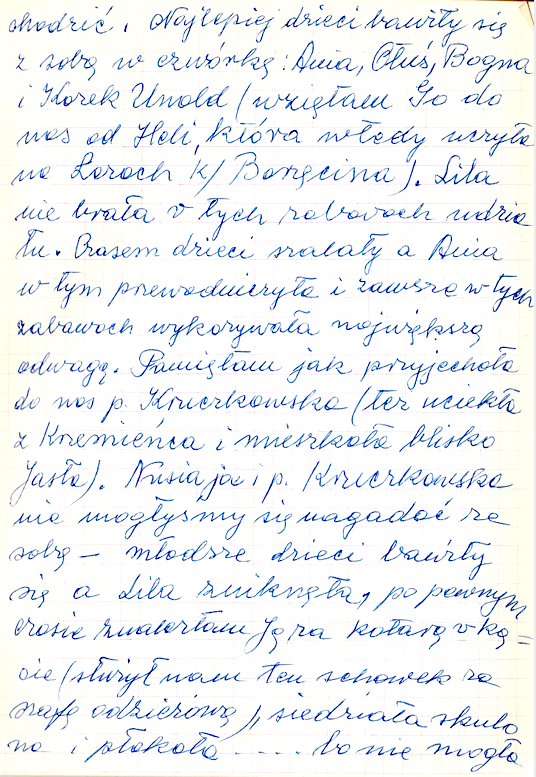 chodzić. Najlepiej dzieci bawiły się
z sobą w czwórkę: Ania, Oluś, Bogna
i Korek Unold (wzięłam Go do
nas od Heli, która wtedy uczyła
na Lorach k/ Boręcina). Lila
nie brała v tych zabawach udzia
łu. Czasem dzieci szalały a Ania
w tym przewodniczyła i zawsze w tych
zabawach wykazywała największą
odwagę. Pamiętam jak przyjechała
do nas p. Kruczkowska (też uciekła
z Krzemieńca i mieszkała blisko
Jasła). Nusia, ja i p. Kruczkowska
nie mogłyśmy się nagadać ze
sobą – młodsze dzieci bawiły
się a Lila zniknęła, po pewnym
czasie znalazłam Ją za kotarą v ką=
cie (służył nam ten schowek za
szafę odzieżową), siedziała skulo
na i płakała .... bo nie mogła